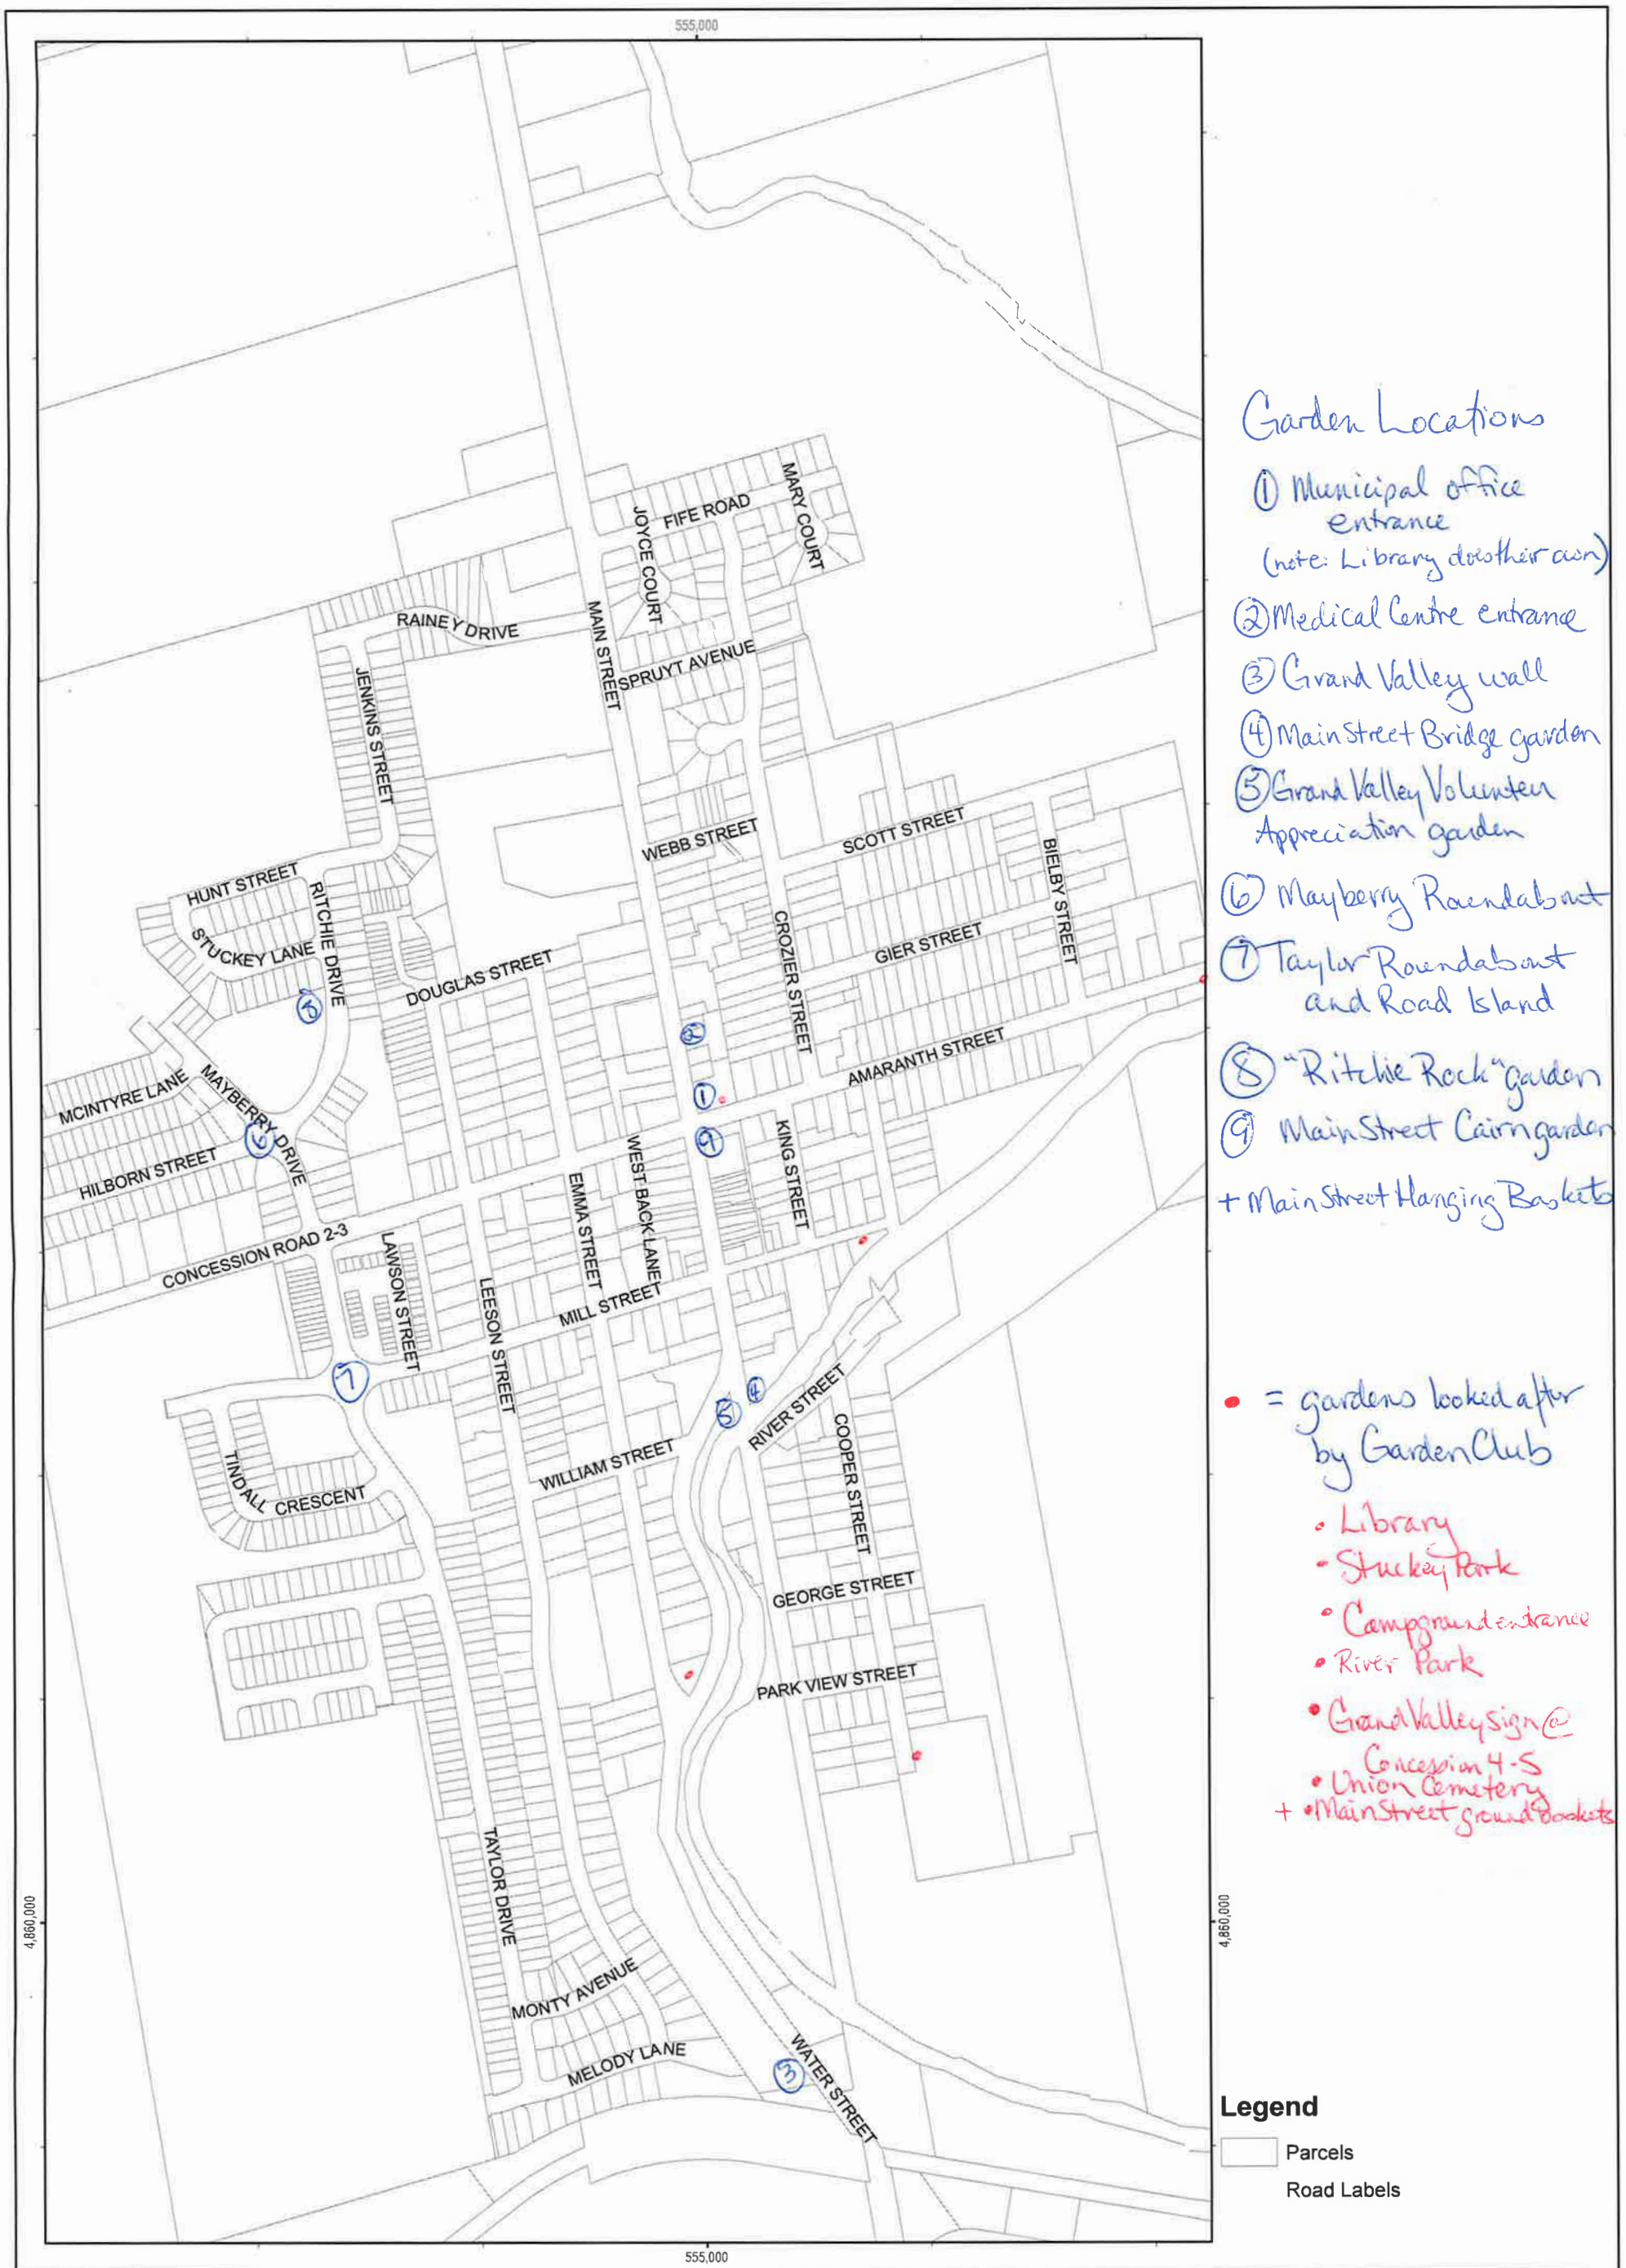 555,000
FIFE ROAD
MARY COURT
JOYCE COURT
RAINEY DRIVE
MAIN STREET
SPRUYT AVENUE
JENKINS STREET
WEBB STREET
SCOTT STREET
BIELBY STREET
HUNT STREET
RITCHIE DRIVE
STUCKEY LANE
CROZIER STREET
GIER STREET
DOUGLAS STREET
8
2
AMARANTH STREET
MCINTYRE LANE
MAYBERRY DRIVE
1
6
9
KING STREET
WEST BACK LANE
HILBORN STREET
EMMA STREET
CONCESSION ROAD 2-3
LAWSON STREET
LEESON STREET
MILL STREET
7
4
5
RIVER STREET
COOPER STREET
WILLIAM STREET
TINDALL CRESCENT
GEORGE STREET
PARK VIEW STREET
TAYLOR DRIVE
4,860,000
4,860,000
MONTY AVENUE
MELODY LANE
3
WATER STREET
555,000
Garden Locations
① Municipal office
entrance
(note: Library does their own)
② Medical Centre entrance
③ Grand Valley wall
④ Main Street Bridge garden
⑤ Grand Valley Volunteer
Appreciation garden
⑥ Mayberry Roundabout
⑦ Taylor Roundabout
and Road Island
⑧ "Ritchie Rock" garden
⑨ Main Street Cairn garden
+ Main Street Hanging Baskets
• = gardens looked after
by Garden Club
• Library
• Stuckey Park
• Campground entrance
• River Park
• Grand Valley sign @
Concession 4-5
• Union Cemetery
+ • Main Street ground baskets
Legend
Parcels
Road Labels